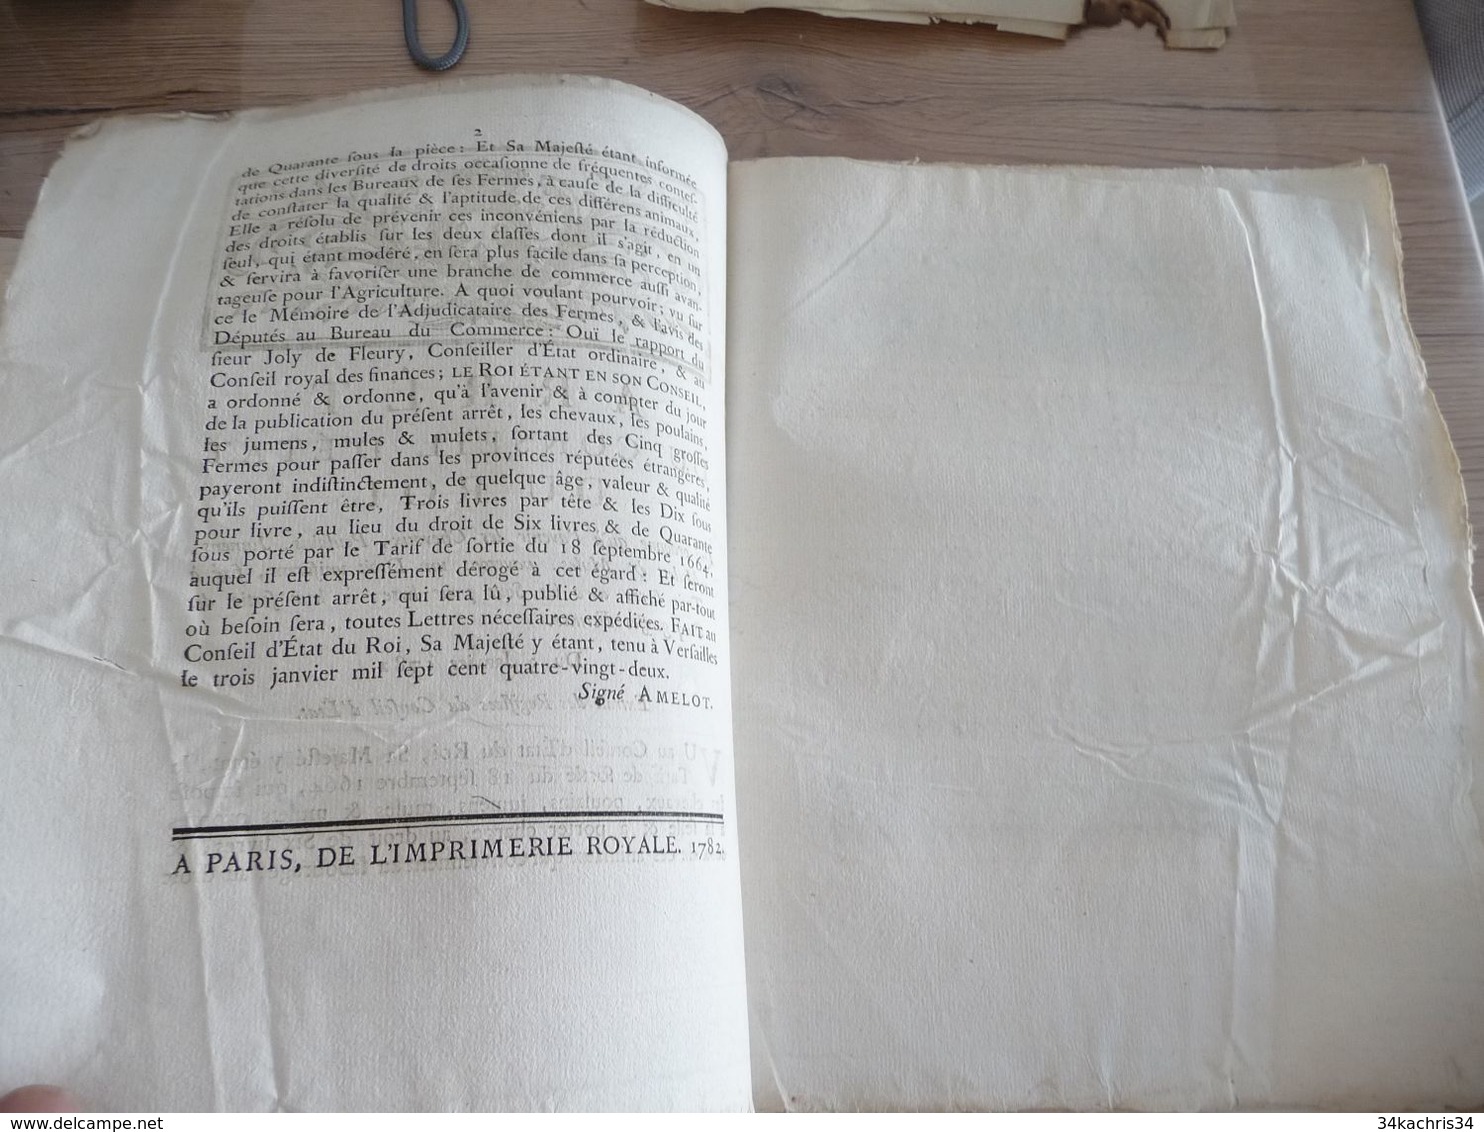 2
de Quarante ſous la pièce : Et Sa Majeſté étant informée
que cette diverſité de droits occaſionne de fréquentes conteſ-
tations dans les Bureaux de ſes Fermes, à cauſe de la difficulté
de conſtater la qualité & l'aptitude de ces différens animaux,
Elle a réſolu de prévenir ces inconvéniens par la réduction
des droits établis ſur les deux claſſes dont il s'agit, en un
ſeul, qui étant modéré, en ſera plus facile dans ſa perception,
& ſervira à favoriſer une branche de commerce auſſi avan-
tageuſe pour l'Agriculture. A quoi voulant pourvoir; vu ſur
ce le Mémoire de l'Adjudicataire des Fermes, & l'avis des
Députés au Bureau du Commerce : Ouï le rapport du
ſieur Joly de Fleury, Conſeiller d'État ordinaire, & au
Conſeil royal des finances; LE ROI ÉTANT EN SON CONSEIL,
a ordonné & ordonne, qu'à l'avenir & à compter du jour
de la publication du préſent arrêt, les chevaux, les poulains,
les jumens, mules & mulets, ſortant des Cinq groſſes
Fermes pour paſſer dans les provinces réputées étrangères,
payeront indiſtinctement, de quelque âge, valeur & qualité
qu'ils puiſſent être, Trois livres par tête & les Dix ſous
pour livre, au lieu du droit de Six livres & de Quarante
ſous porté par le Tarif de ſortie du 18 ſeptembre 1664,
auquel il eſt expreſſément dérogé à cet égard : Et ſeront
ſur le préſent arrêt, qui ſera lû, publié & affiché par-tout
où beſoin ſera, toutes Lettres néceſſaires expédiées. FAIT au
Conſeil d'État du Roi, Sa Majeſté y étant, tenu à Verſailles
le trois janvier mil ſept cent quatre-vingt-deux.
Signé AMELOT.
A PARIS, DE L'IMPRIMERIE ROYALE. 1782.
34kachris34